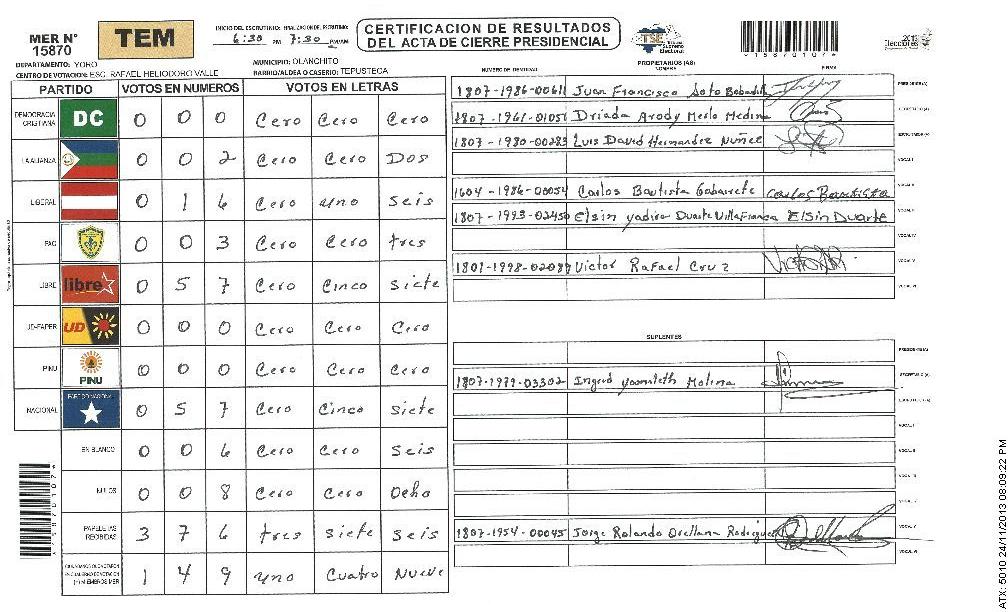 MER N° 15870
TEM
INICIO DEL ESCRUTINIO: FINALIZACION DEL ESCRUTINIO:
6:30 PM 7:30 PM/AM
CERTIFICACION DE RESULTADOS
DEL ACTA DE CIERRE PRESIDENCIAL
TSE Tribunal Supremo Electoral
*15870107*
2013 Elecciones
DEPARTAMENTO: YORO
MUNICIPIO: OLANCHITO
CENTRO DE VOTACION: ESC. RAFAEL HELIODORO VALLE
BARRIO/ALDEA O CASERIO: TEPUSTECA
PARTIDO VOTOS EN NUMEROS VOTOS EN LETRAS
DEMOCRACIA CRISTIANA DC 0 0 0 Cero Cero Cero
LA ALIANZA 0 0 2 Cero Cero Dos
LIBERAL 0 1 6 Cero uno Seis
PAC 0 0 3 Cero Cero tres
LIBRE libre 0 5 7 Cero Cinco Siete
UD-FAPER UD 0 0 0 Cero Cero Cero
PINU PINU 0 0 0 Cero Cero Cero
NACIONAL PARTIDO NACIONAL 0 5 7 Cero Cinco Siete
EN BLANCO 0 0 6 Cero Cero Seis
NULOS 0 0 8 Cero Cero Ocho
PAPELETAS RECIBIDAS 3 7 6 tres siete seis
1 4 9 uno Cuatro Nueve
PROPIETARIOS (AS)
NUMERO DE IDENTIDAD NOMBRE FIRMA
1807-1986-00611 Juan Francisco Soto Bobadilla PRESIDENTE(A)
1807-1961-01051 Driada Arody Merlo Medina SECRETARIO (A)
1807-1980-00283 Luis David Hernandez Nuñez ESCRUTADOR (A)
VOCAL I
1604-1986-00054 Carlos Bautista Gabarrete Carlos Bautista VOCAL II
1807-1993-02450 Elsin yadira Duarte Villafranca Elsin Duarte VOCAL III
VOCAL IV
1807-1998-02087 Victor Rafael Cruz VOCAL V
VOCAL VI
SUPLENTES
PRESIDENTE(A)
1807-1979-03302 Ingrid Yamileth Molina SECRETARIO (A)
ESCRUTADOR (A)
VOCAL I
VOCAL II
VOCAL III
1807-1954-00045 Jorge Rolando Orellana Rodriguez VOCAL V
VOCAL VI
*15870107*
ATX: 5010 24/11/2013 08:09:22 PM